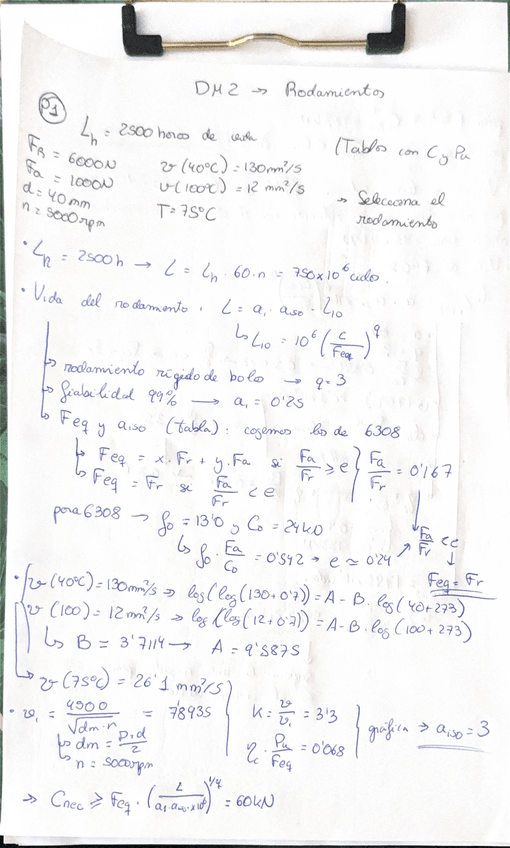 DM2 → Rodamientos
P1
Lh = 2500 horas de vida
(Tablas con C y Pu
FR = 6000N
Fa = 1000N
d = 40mm
n = 5000rpm
ν(40°C) = 130mm²/s
ν(100°C) = 12 mm²/s
T = 75°C
→ Selecciona el
rodamiento
• Lh = 2500h → L = Lh · 60 · n = 750x10⁶ ciclos.
• Vida del rodamiento: L = a₁ · aiso · L10
↳ L10 = 10⁶ (C/Feq)^q
↳ rodamiento rígido de bolas → q = 3
↳ fiabilidad 99% → a₁ = 0'25
↳ Feq y aiso (tabla): cogemos los de 6308
↳ Feq = x · Fr + y · Fa si Fa/Fr ≥ e } Fa/Fr = 0'167
↳ Feq = Fr si Fa/Fr < e
para 6308 → f0 = 13'0 y C0 = 24kN
Fa/Fr < e
↳ f0 · Fa/C0 = 0'542 → e ≃ 0'24
Feq = Fr
• ν(40°C) = 130mm²/s ⇒ log(log(130+0'7)) = A - B · log(40+273)
ν(100) = 12mm²/s ⇒ log(log(12+0'7)) = A - B · log(100+273)
↳ B = 3'7114 → A = 9'5875
↳ ν(75°C) = 26'1 mm²/s
• ν₁ = 4500/√dm·n = 7'8935
↳ dm = D+d/2
↳ n = 5000rpm
K = ν/ν₁ = 3'3
ηc · Pu/Feq = 0'068
gráfica ⇒ aiso = 3
⇒ Cnec ≥ Feq · (L/a₁·aiso·x10⁶)^1/q = 60kN